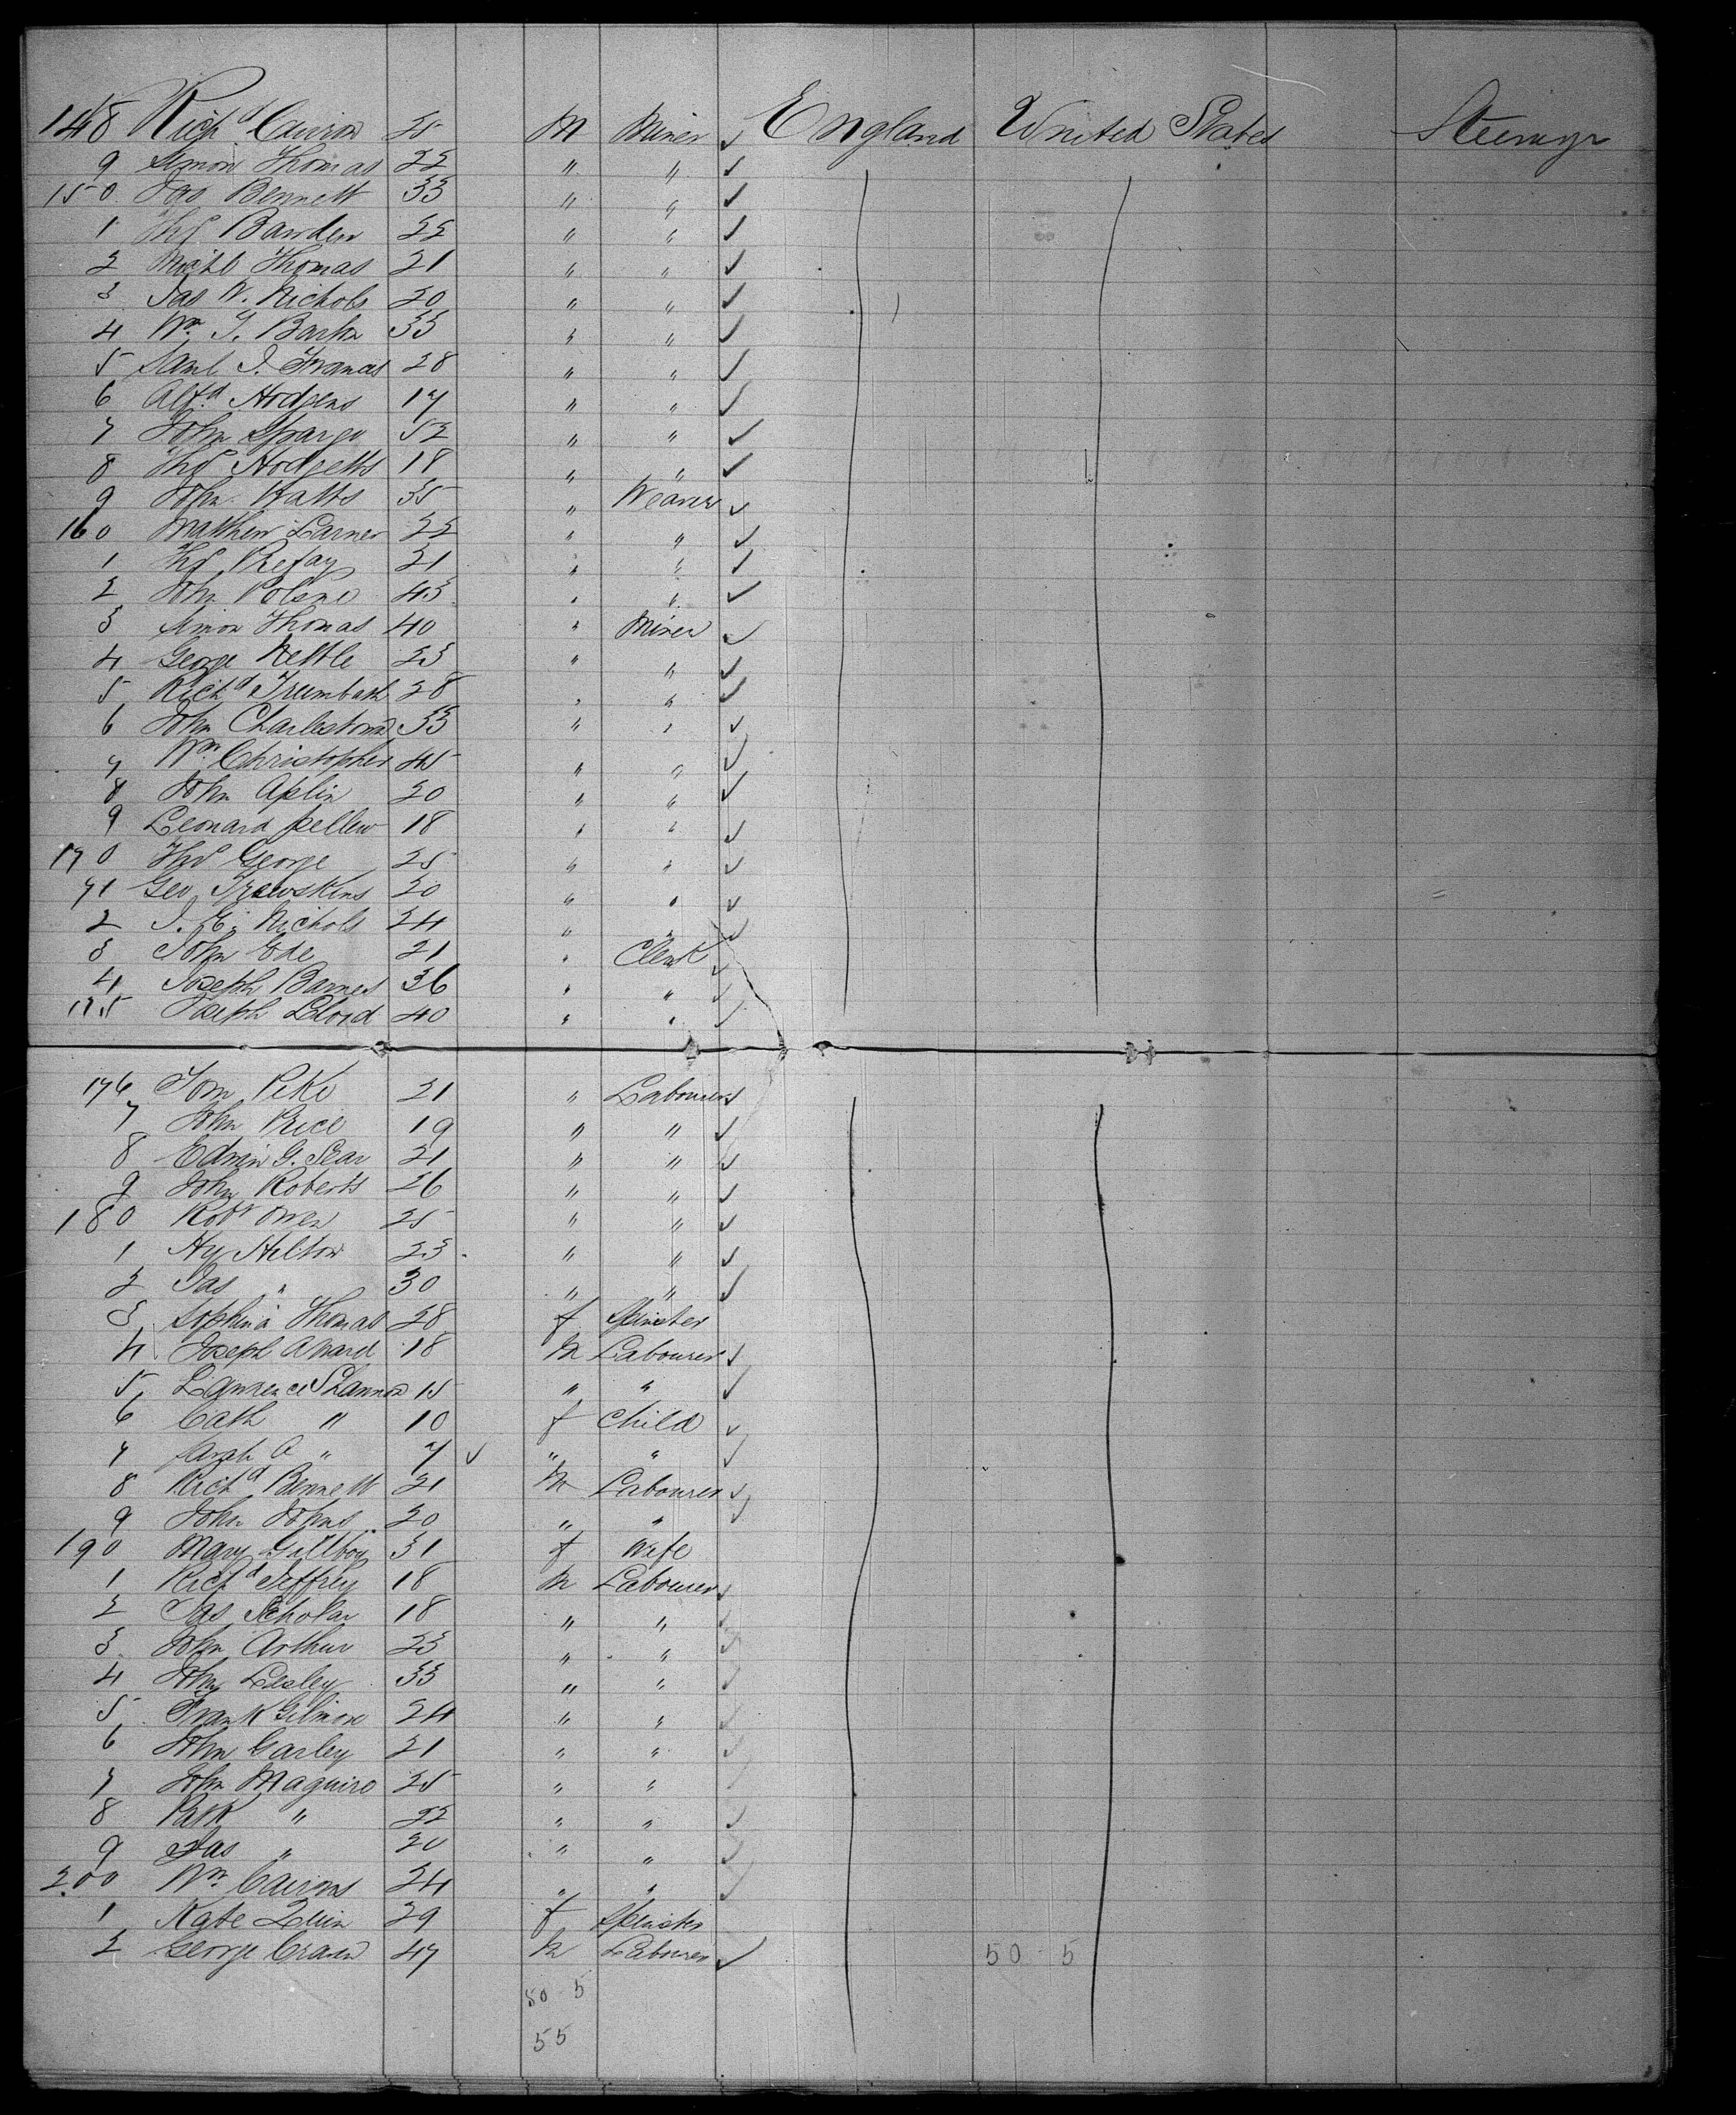 148 Richd Cawson 25 M Miner England United States Steerage
9 Simon Thomas 22 " "
150 Jas Bennett 33 " "
1 Ths Bawden 22 " "
2 Michl Thomas 21 " "
3 Jas W. Nichols 20 " "
4 Wm. J. 33 " "
5 Saml J. Francis 28 " "
6 Alfd Hodgens 17 " "
7 John Spargo 52 " "
8 Ths Hodgetts 18 " "
9 John Watts 35 " Weaver
160 Matthew Larner 22 " "
1 Ths 21 " "
2 John 43 " "
3 Simon Thomas 40 " Miner
4 George Kettle 23 " "
5 Richd Trumbath 28 " "
6 John Charlestown 33 " "
7 Wm Christopher 45 " "
8 John Aplin 20 " "
9 Leonard pellew 18 " "
170 Ths George 25 " "
71 Geo Trewskins 20 " "
2 J. E. Nichols 24 " "
3 John Ede 21 " Clerk
4 Joseph Barnes 36 " "
175 Joseph Lloyd 40 " "
176 Tom Pike 21 " Labourer
7 John Price 19 " "
8 Edwin G. Sear 21 " "
9 John Roberts 26 " "
180 Robt Owen 25 " "
1 Hy Hilton 23 " "
2 Jas " 30 " "
3 Sophina Thomas 28 f Spinster
4 Joseph Award 18 M Labourer
5 Lawrence Shannon 15 " "
6 Cath " 10 f Child
7 Sarah A " 7 " "
8 Richd Bennett 21 M Labourer
9 John Johns 20 " "
190 Mary Gillboy 31 f Wife
1 Richd Jeffrey 18 M Labourer
2 Jas Scholar 18 " "
3 John Arthur 23 " "
4 John Lesley 33 " "
5 Frank Gilmore 24 " "
6 John Garley 21 " "
7 John Maguire 25 " "
8 Patk " 22 " "
9 Jas " 20 " "
200 Wm Cairns 24 " "
1 Kate Quin 29 f Spinster
2 George Craven 47 M Labourer 50 5
50 5
55